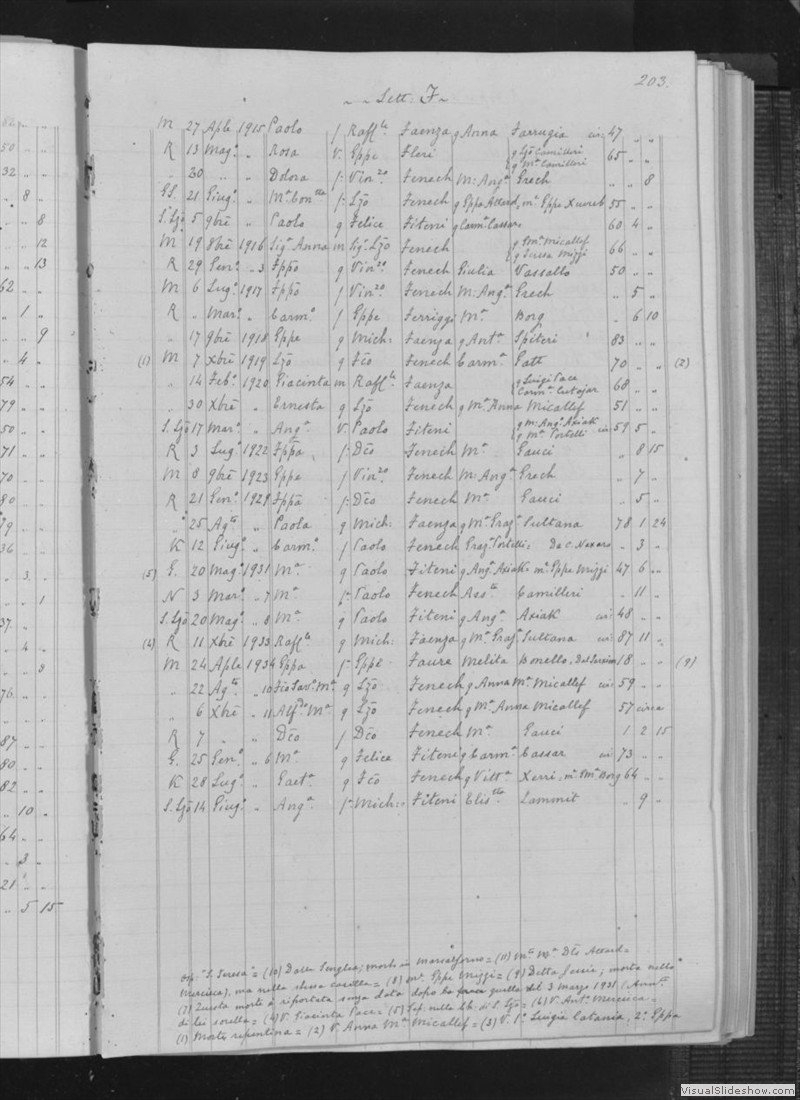 203.
~ ~ Lett: F ~
M 27 Aple 1915 Paolo f Raff.le Faenza q Anna Farrugia in 47 " "
R 13 Mag.o " Rosa V. Eppe Fleri q Ljo Camilleri q M.a Camilleri 65 " "
" 30 " " Dolora f. Vin.zo Fenech M: Ang.a Grech " " 8
21 Giug.o " M.a f. Ljo Fenech q Eppa Accard, m.o Eppe Xuereb 55 " "
S. Ljo 5 9bre " Paolo q Felice Fiteni q Carm.a Cassar 60 4 "
M 19 8bre 1916 Sig.a Anna m Sig. Ljo Fenech q Sm.e Micallef q Teresa Mizzi 66 " "
R 29 Gen.o " 3 Fppo q Vin.zo Fenech Giulia Vassallo 50 " "
M 6 Lug.o 1917 Fppo f Vin.zo Fenech M: Ang.a Grech " 5 "
R " Mar.o " Carm.o f Eppe Ferriggi M.a Borg " 6 10
" 17 9bre 1918 Eppe q Mich: Faenza q Ant.a Spiteri 83 " "
(1) M 7 Xbre 1919 Ljo q Fco Fenech Carm.a Galt 70 " " (2)
" 14 Feb.o 1920 Giacinta m Raff.le Faenza q Luigi Pace Carm.a Cutajar 68 " "
" 30 Xbre " Ernesta q Ljo Fenech q M.a Anna Micallef 51 " "
S. Ljo 17 Mar.o " Ang.a V. Paolo Fiteni q m: Ang.o Axiak q M.a Portelli in 59 5 "
R 3 Lug.o 1922 Fppa f. Dco Fenech M.a Gauci " 8 15
M 8 9bre 1923 Eppa f Vin.zo Fenech M: Ang.a Grech " 7 "
R 21 Gen.o 1929 Fppa f. Dco Fenech M.a Gauci " 5 "
" 25 Ag.to " Paola q Mich: Faenza q M.a Graz.a Sultana 78 1 24
K 12 Giug.o " Carm.o f Paolo Fenech Graz.a Portelli = Da C. Naxaro " 3 "
(5) G. 20 Mag.o 1931 M.a q Paolo Fiteni q Ang.a Axiak m.o Eppe Mizzi 47 6 "
N 3 Mar.o " 7 M.a f. Paolo Fenech Ass.ta Camilleri " 11 "
S. Ljo 20 Mag.o " 8 M.a q Paolo Fiteni q Ang.a Axiak in 48 " "
(4) R 11 Xbre 1933 Raff.le q Mich: Faenza q M.a Graz.a Sultana in 87 11 "
M 24 Aple 1934 Eppa f. Eppe Faure Melita Bonello 18 " " (9)
" 22 Ag.to " 10 Fco Sav.o M.a q Ljo Fenech q Anna M.a Micallef in 59 " "
" 6 Xbre " 11 Alf.do M.a q Ljo Fenech q M.a Anna Micallef 57 circa
R 7 " " Dco f Dco Fenech M.a Gauci 1 2 15
G. 25 Gen.o " 6 M.a q Felice Fiteni q Carm.a Cassar in 73 " "
K 28 Lug.o " Gaet.a q Fco Fenech q Vitt.a Xerri = m.o Borg 64 " "
S. Ljo 14 Giug.o " Ang.a f. Mich: Fiteni Elis.tta Zammit " 9 "
"S. Teresa" = (10) Dalla Senglea; morto in Marsalforno = (11) M.to M.a Dta Accard =
Mercieca), ma nella stessa casella = (8) m.o Eppe Mizzi = (9) Detta Jessie, morta nello
(7) Questa morte è riportata senza data dopo quella del 3 marzo 1931
di lei sorella = (4) V. Giacinta Pace = (5) Sep: nella Ch: di S. Ljo = (6) V. Ant.a Mercieca =
(1) Morte repentina = (2) V. Anna M.a Micallef = (3) V. 1.o Luigia Catania, 2.o Eppa
82 " "
50 " "
32 " "
" 8 "
" " 8
" " 12
" " 13
62 " "
" 1 "
" " 9
" 4 "
54 " "
79 " "
50 " "
71 " "
70 " "
80 " "
79 " "
36 " "
" 3 "
" " 1
37 " "
" 4 "
" " 3
76 " "
87 " "
80 " "
82 " "
" 10 "
64 " "
" 3 "
21 " "
" 5 15
VisualSlideshow.com